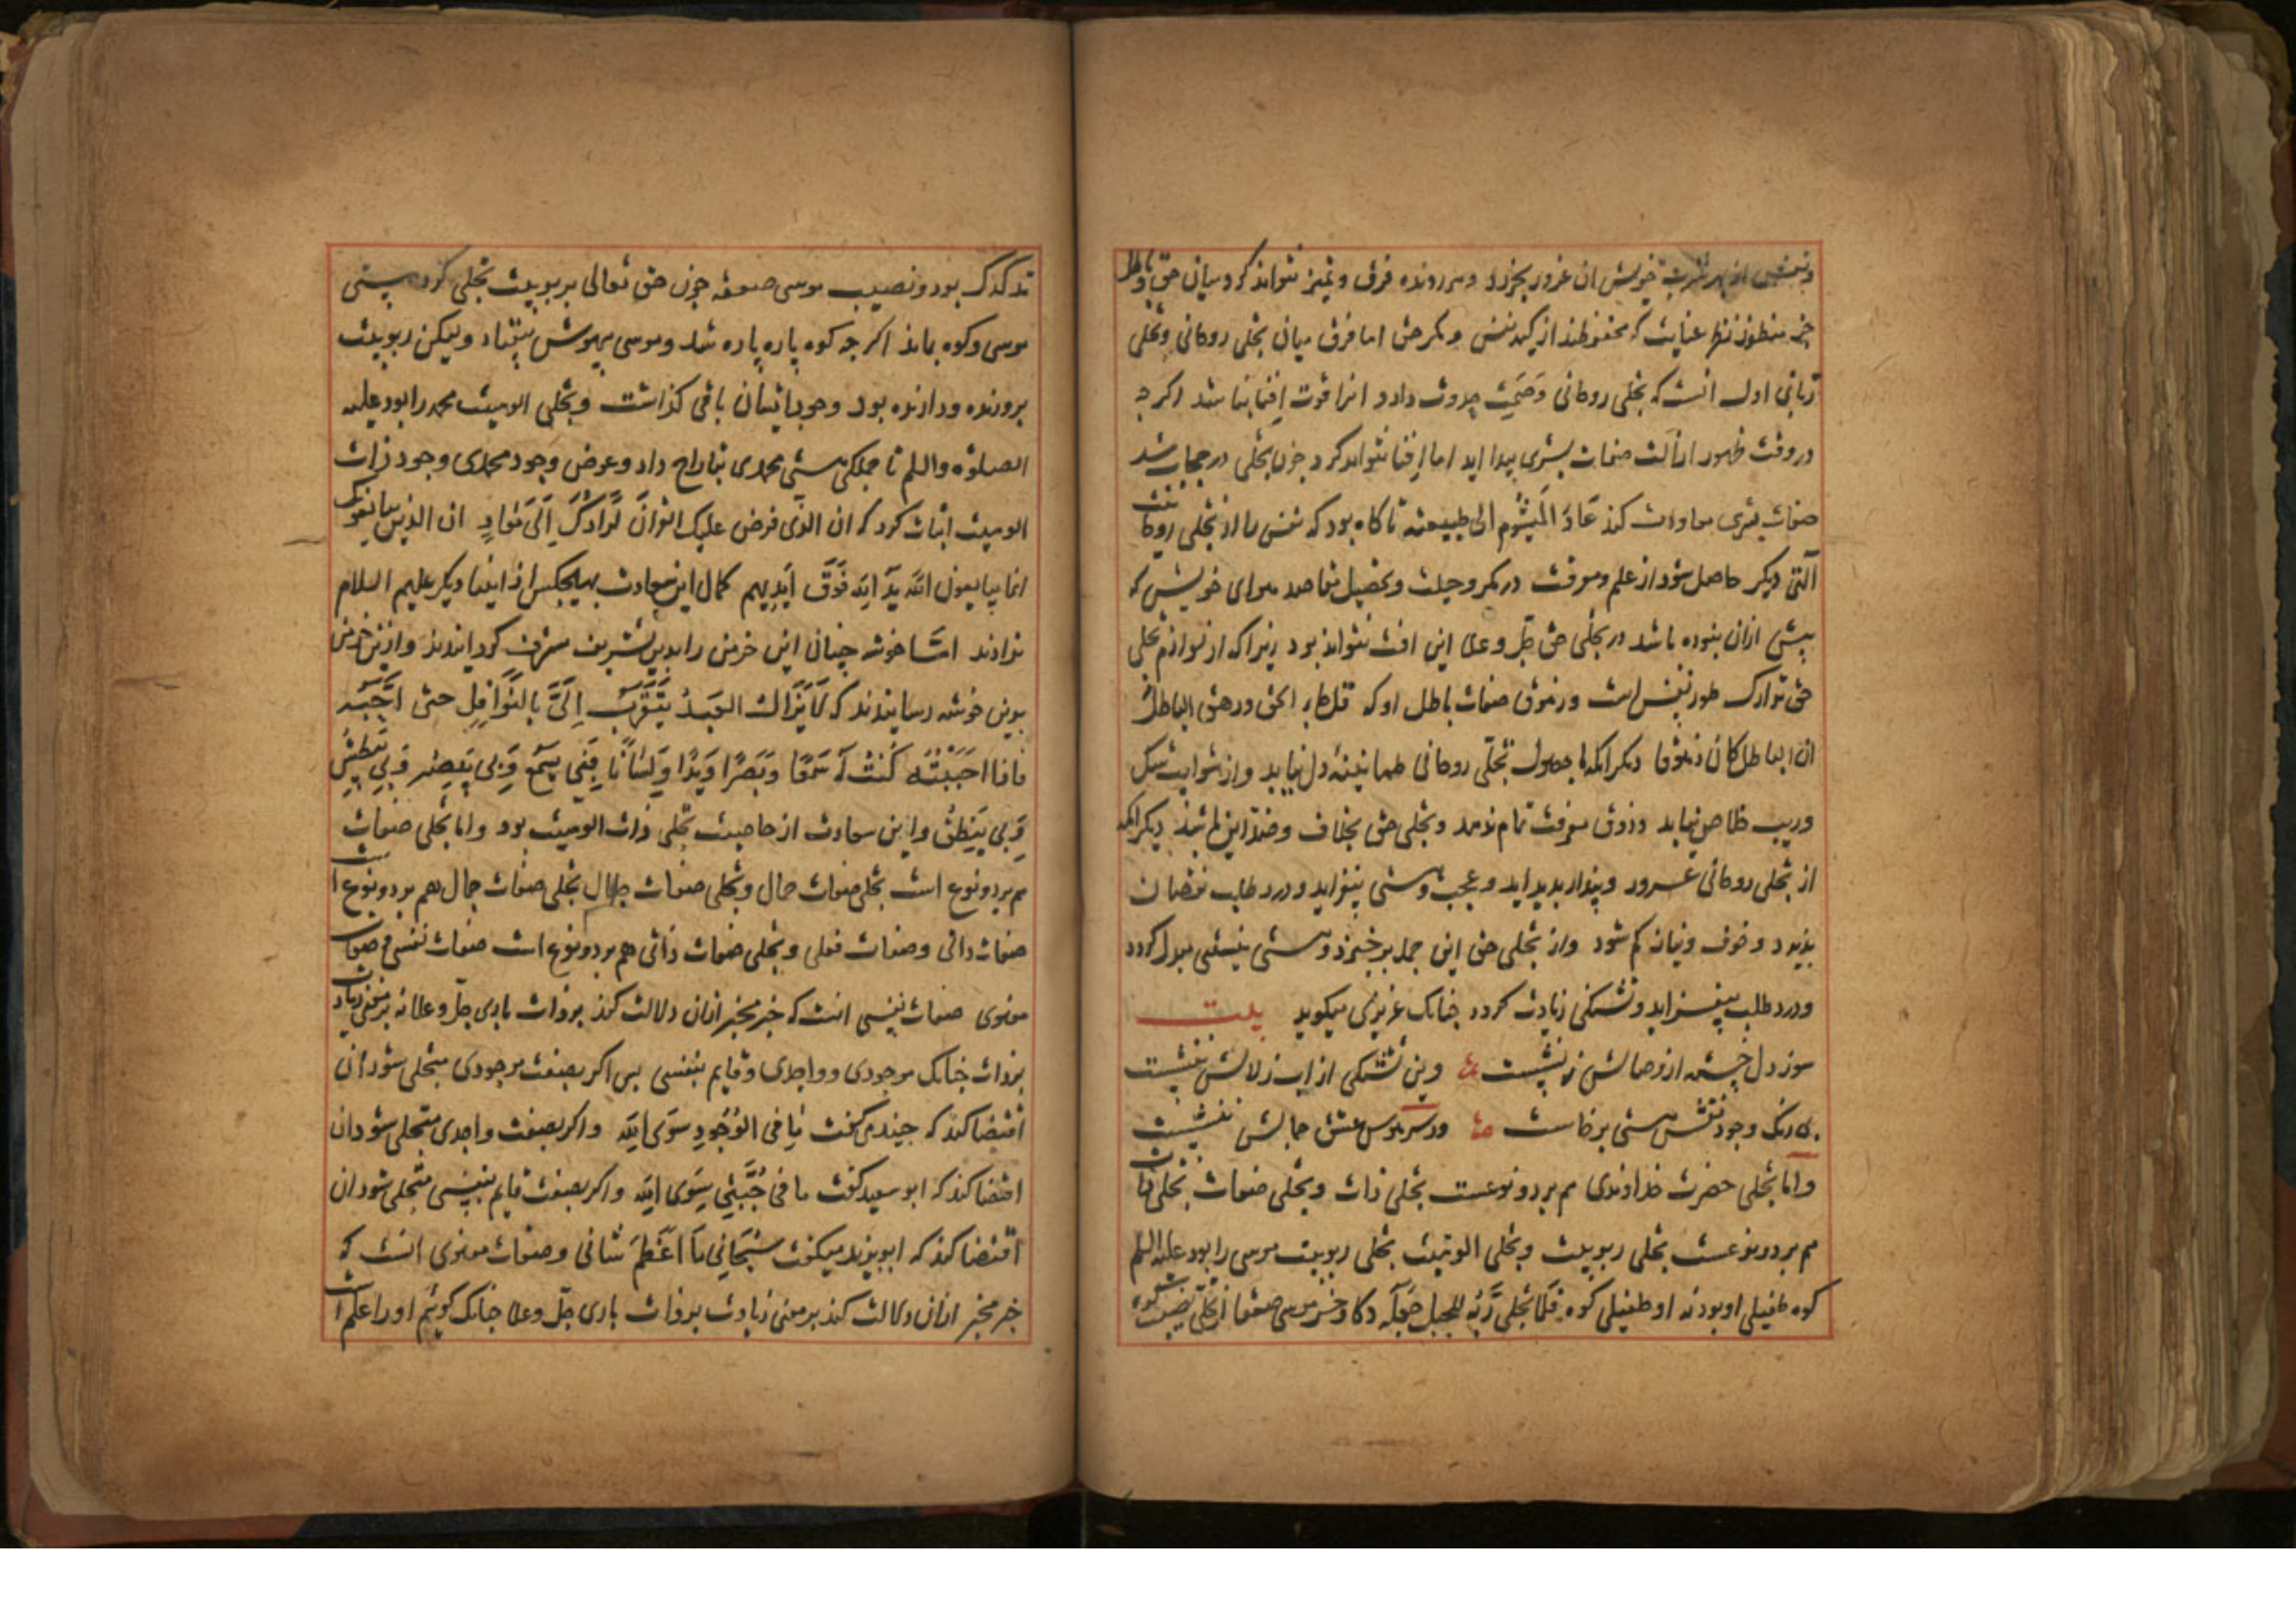 ونفس از بهر شرب خویش ان غرور بخرد و هر رونده فرق و تمیز نتواند کرد میان حق و باطل
جز منظوران نظر عنایت که محفوظند از کید نفس و مکر حق اما فرق میان تجلی روحانی و تجلی
ربانی اول انست که تجلی روحانی وصمت حدوث دارد انرا قوت افنا نباشد اکرچه
در وقت ظهور ازالت صفات بشری پیدا اید اما افنا نتواند کرد چون تجلی در حجاب شد
صفات بشری معاودت کند عاد المیشوم الی طبیعته تا کاه بود که نفس را از تجلی روحانیت
آلتی دیکر حاصل شود از علم و معرفت در مکر و حیلت و تحصیل مقاصد هوای خویش که
پیش ازان نبوده باشد در تجلی حق جل و علا این افت نتواند بود زیرا که از لوازم تجلی
حق تدکدک طور نفس است و زهوق صفات باطل او که قل جاء الحق و زهق الباطل
ان الباطل کان زهوقا دیکر انکه با حصول تجلی روحانی طمانینه دل نیابد و از شوایب شک
و ریب خلاص نیابد و ذوق معرفت تمام ندهد و تجلی حق بخلاف و ضد این باشد دیکر انکه
از تجلی روحانی غرور و پندار پدید اید و عجب و هستی بیفزاید و درد طلب نقصان
پذیرد و خوف و نیاز کم شود و از تجلی حق این جمله برخیزد و هستی بنیستی مبدل کردد
و درد طلب بیفزاید و تشنکی زیادت کردد چنانک عزیزی میکوید بیت
سوز دل خسته از وصالش ننشست وین تشنکی از اب زلالش ننشست
رنک وجود نقش هستی برخاست وز سر هوس عشق جمالش ننشست
و اما تجلی حضرت خداوندی هم بر دو نوعست تجلی ذات و تجلی صفات تجلی ذات
هم بر دو نوعست تجلی ربوبیت و تجلی الوهیت تجلی ربوبیت موسی را بود علیه السلم
کوه طفیلی او بود نه او طفیلی کوه فلما تجلی ربه للجبل جعله دکا و خر موسی صعقا از تجلی نصیب کوه
تدکدک بود و نصیب موسی صعقه چون حق تعالی بربوبیت تجلی کرد هستی
موسی و کوه بماند اکرچه کوه پاره پاره شد و موسی بیهوش بیفتاد ولیکن ربوبیت
پرورنده و دارنده بود وجود ایشان باقی کذاشت و تجلی الوهیت محمد را بود علیه
الصلوة والسلم تا جملکی هستی محمدی بتاراج داد و عوض وجود محمدی وجود ذات
الوهیت اثبات کرد که ان الذی فرض علیک القران لرادک الی معاد ان الذین یبایعونک
انما یبایعون الله ید الله فوق ایدیهم کمال این سعادت بهیچکس از انبیا دیکر علیهم السلام
ندادند اما خوشه چینان این خرمن را بدین تشریف مشرف کردانیدند و ازین خرمن
بدین خوشه رسانیدند که لایزال العبد یتقرب الی بالنوافل حتی احبه
فاذا احببته کنت له سمعا و بصرا و یدا و لسانا فبی یسمع وبی یبصر وبی یبطش
وبی ینطق و این سعادت از خاصیت تجلی ذات الوهیت بود و اما تجلی صفات
هم بر دو نوع است تجلی صفات جمال و تجلی صفات جلال تجلی صفات جمال هم بر دو نوع است
صفات ذاتی و صفات فعلی و تجلی صفات ذاتی هم بر دو نوع است صفات نفسی و صفات
معنوی صفات نفسی انست که خبر مخبر ازان دلالت کند بر ذات باری جل و علا نه بر معنی زیادت
بر ذات چنانک موجودی و واحدی و قایم بنفسی پس اکر بصفت موجودی متجلی شود ان
اقتضا کند که جنید می کفت ما فی الوجود سوی الله و اکر بصفت واحدی متجلی شود ان
اقتضا کند که ابو سعید کفت ما فی جبتی سوی الله و اکر بصفت قایم بنفسی متجلی شود ان
اقتضا کند که ابویزید میکفت سبحانی ما اعظم شانی و صفات معنوی انست که
خبر مخبر ازان دلالت کند بر معنی زیادت بر ذات باری جل و علا چنانک کوئیم او را علم است